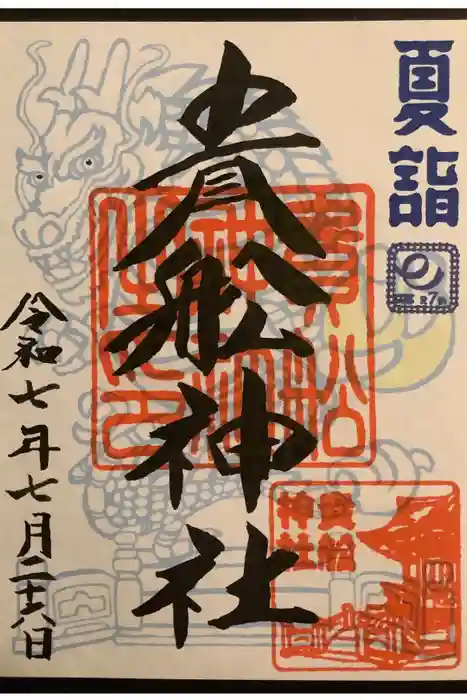 夏詣
貴船神社
貴船
神社
之印
貴船
神社
令和七年七月二十八日